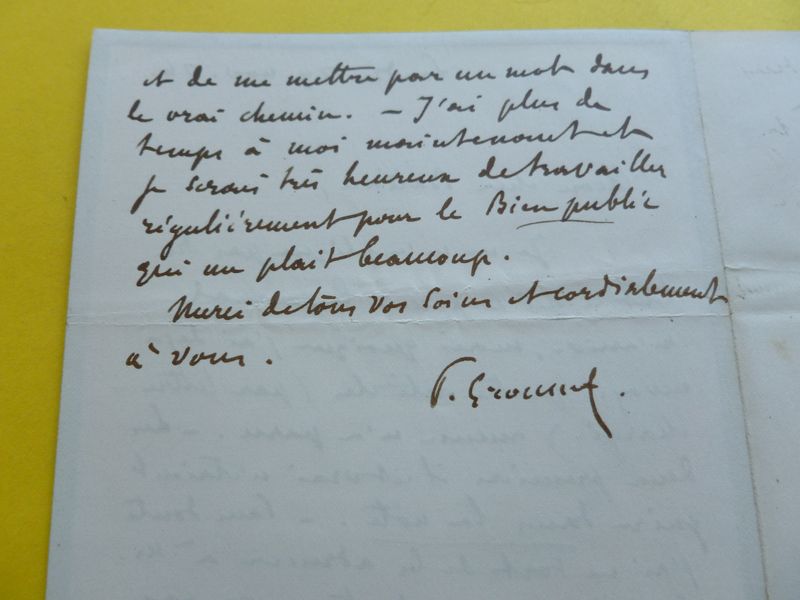 et de me mettre par un mot dans
le vrai chemin. — J'ai plus de
temps à moi maintenant et
je serais très heureux de travailler
régulièrement pour le Bien public
qui me plait beaucoup.
Merci de tous vos soins et cordialement
à vous.